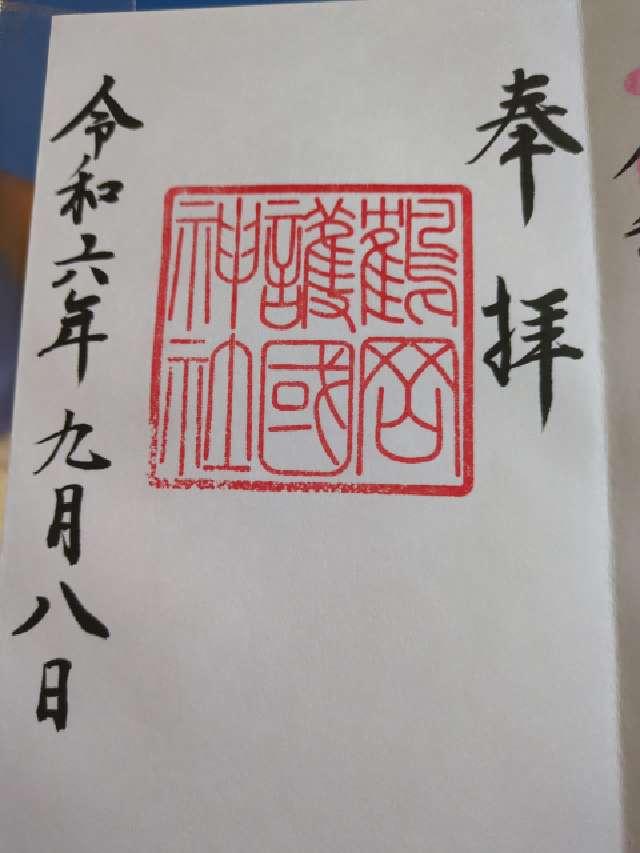 奉拝
鶴岡
護國
神社
令和六年九月八日